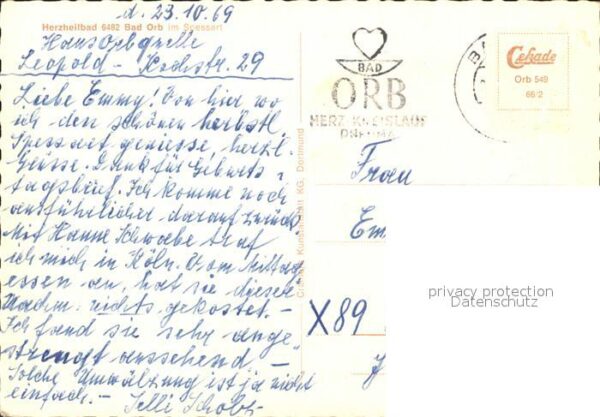 d. 23.10.69
Herzheilbad 6482 Bad Orb im Spessart
Haus Orbquelle
Leopold-Kochstr. 29
Liebe Emmy! Von hier wo
ich den schönen herbstl.
Spessart geniesse, herzl.
Grüsse. Dank für Geburts-
tagsbrief. Ich komme noch
ausführlicher darauf zurück.
Mit Hanne Schwabe traf
ich mich in Köln.
essen an, hat sie dieser
nichts gekostet. –
Ich fand sie sehr ange-
strengt aussehend. –
Solche Umwälzung ist ja nicht
einfach. –
BAD
ORB
HERZ KREISLAUF
Cekade
Orb 549
66/2
Frau
Em
X89
privacy protection
Datenschutz